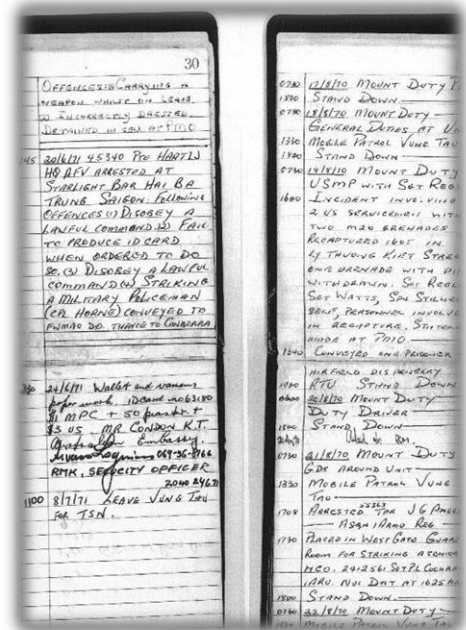 30
OFFENCES (1) CARRYING A
WEAPON WHILST ON LEAVE
(2) INCORRECTLY DRESSED
DETAINED IN AT PMO
20/6/71 45340 PTE HART IJ
HQ AFV ARRESTED AT
STARLIGHT BAR HAI BA
TRUNG SAIGON. FOLLOWING
OFFENCES (1) DISOBEY A
LAWFUL COMMAND. (2) FAIL
TO PRODUCE ID CARD
WHEN ORDERED TO DO
SO. (3) DISOBEY A LAWFUL
COMMAND (4) STRIKING
A MILITARY POLICEMAN
(CPL HORNE) CONVEYED TO
THANCE TO CANBERRA
24/6/71 Wallet and various
paper work. ID card no 63180
$1 MPC + 50 +
$3 US. MR CONDON K.T.
Australian Embassy.
RMK, SECURITY OFFICER
1100 8/7/71 LEAVE VUNG TAU
FOR TSN.
0730 17/8/70 MOUNT DUTY
1800 STAND DOWN
0730 18/8/70 MOUNT DUTY
GENERAL DUTIES AT
1330 MOBILE PATROL VUNG TAU
1800 STAND DOWN
0730 19/8/70 MOUNT DUTY
USMP WITH SGT
1600 INCIDENT INVOLVING
2 US SERVICEMEN WITH
TWO M26 GRENADES
RECAPTURED 1605 IN
LY THUONG KIET STREET
ONE GRENADE WITH PIN
WITHDRAWN. SGT
SGT WATTS,
SELF, PERSONNEL INVOLVED
IN RECAPTURE.
MADE AT PMO
CONVEYED ONE PRISONER
AIRFIELD
RTU STAND DOWN
20/8/70 MOUNT DUTY
DUTY DRIVER
STAND DOWN.
0730 21/8/70 MOUNT DUTY
GDS AROUND UNIT
1330 MOBILE PATROL VUNG
TAU
1705 ARRESTED JG
1 ARMD REG
1730 PLACED IN WEST GATE GUARD
ROOM FOR STRIKING A
NCO. 2412561 SGT
NUI DAT AT 1625
1800 STAND DOWN
22/8/70 MOUNT DUTY
MOBILE PATROL VUNG TAU